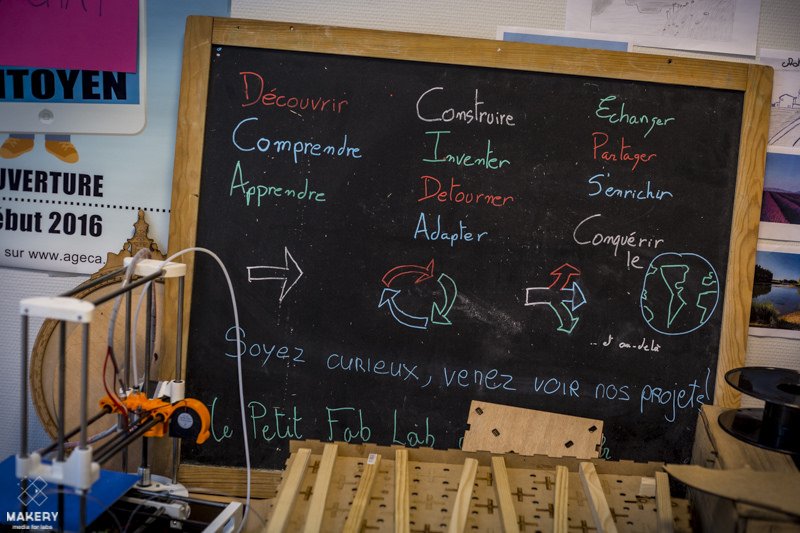 ITOYEN
UVERTURE
ébut 2016
sur www.ageca.
Découvrir
Comprendre
Apprendre
Construire
Inventer
Detourner
Adapter
Echanger
Partager
S'enrichir
Conquérir
le
...et au-delà
Soyez curieux, venez voir nos projets!
Le Petit Fab Lab
MAKERY
media for labs